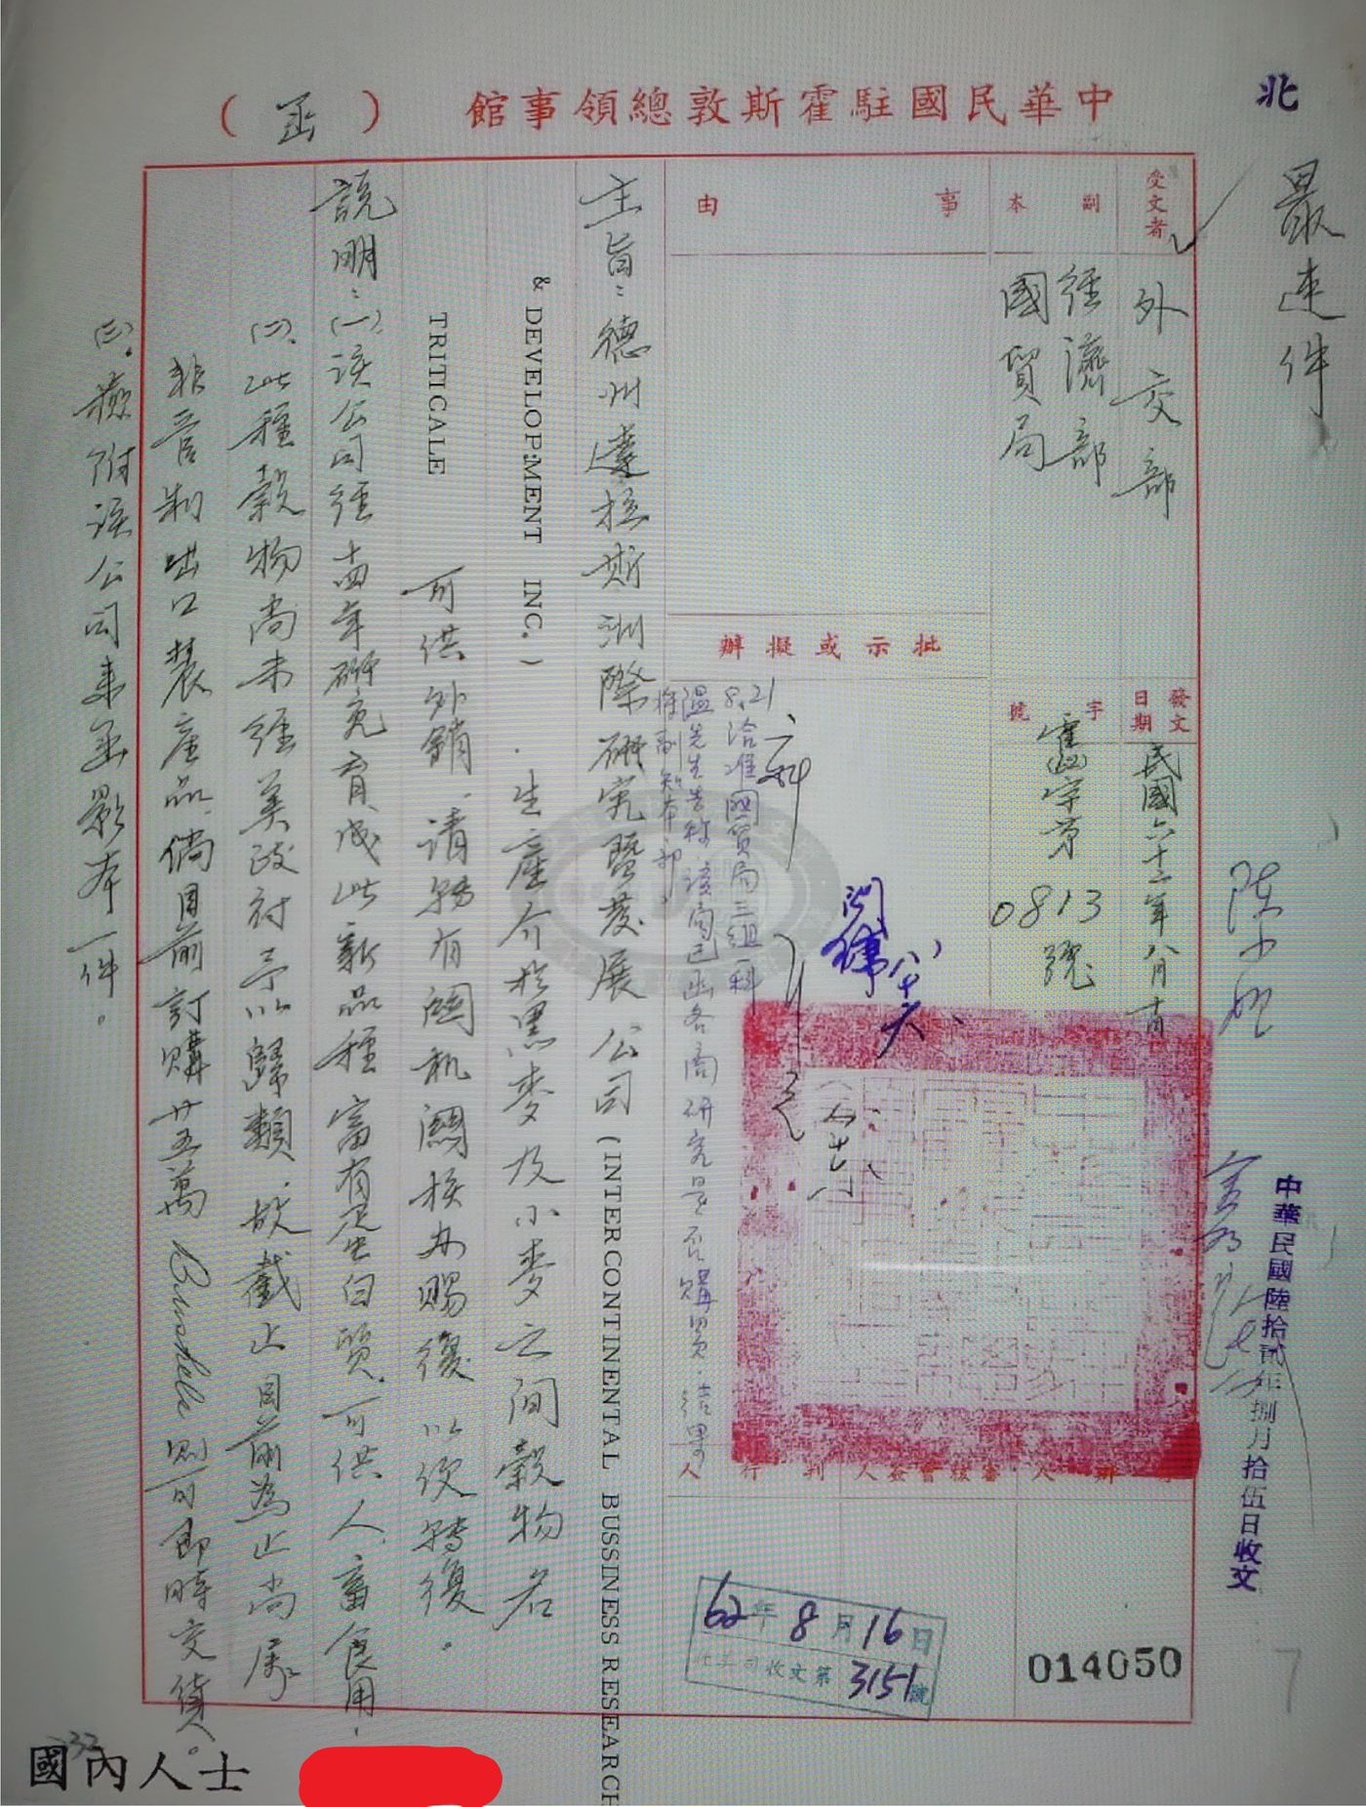 北
最速件
中華民國駐霍斯敦總領事館(函)
受文者
外交部
副本
經濟部
國貿局
事由
發文日期
民國六十二年八月十日
字號
霍(62)字第0813號
批示或擬辦
二科
8.21洽准國貿局三組一科
溫先生告稱該局已函各商研究是否購買,結果
將副知本部
承辦人
審核會簽人
判行人
主旨:德州達拉斯洲際研究暨發展公司(INTERCONTINENTAL BUSSINESS RESEARCH
& DEVELOP:MENT INC.)生產介於黑麥及小麥之間穀物名
TRITICALE 可供外銷,請轉有關機關核办賜復以便轉復。
說明:(一)該公司經十四年研究育成此新品種富有蛋白質,可供人、畜食用,
(二)此種穀物尚未經美政府予以歸類,故截止目前為止尚屬
非管制出口農產品,倘目前訂購廿五萬 Bushels 則可即時交貨。
(三)檢附該公司來函影本一件。
中華民國陸拾貳年捌月拾伍日收文
62年8月16日
收文第3151號
014050
7
國內人士